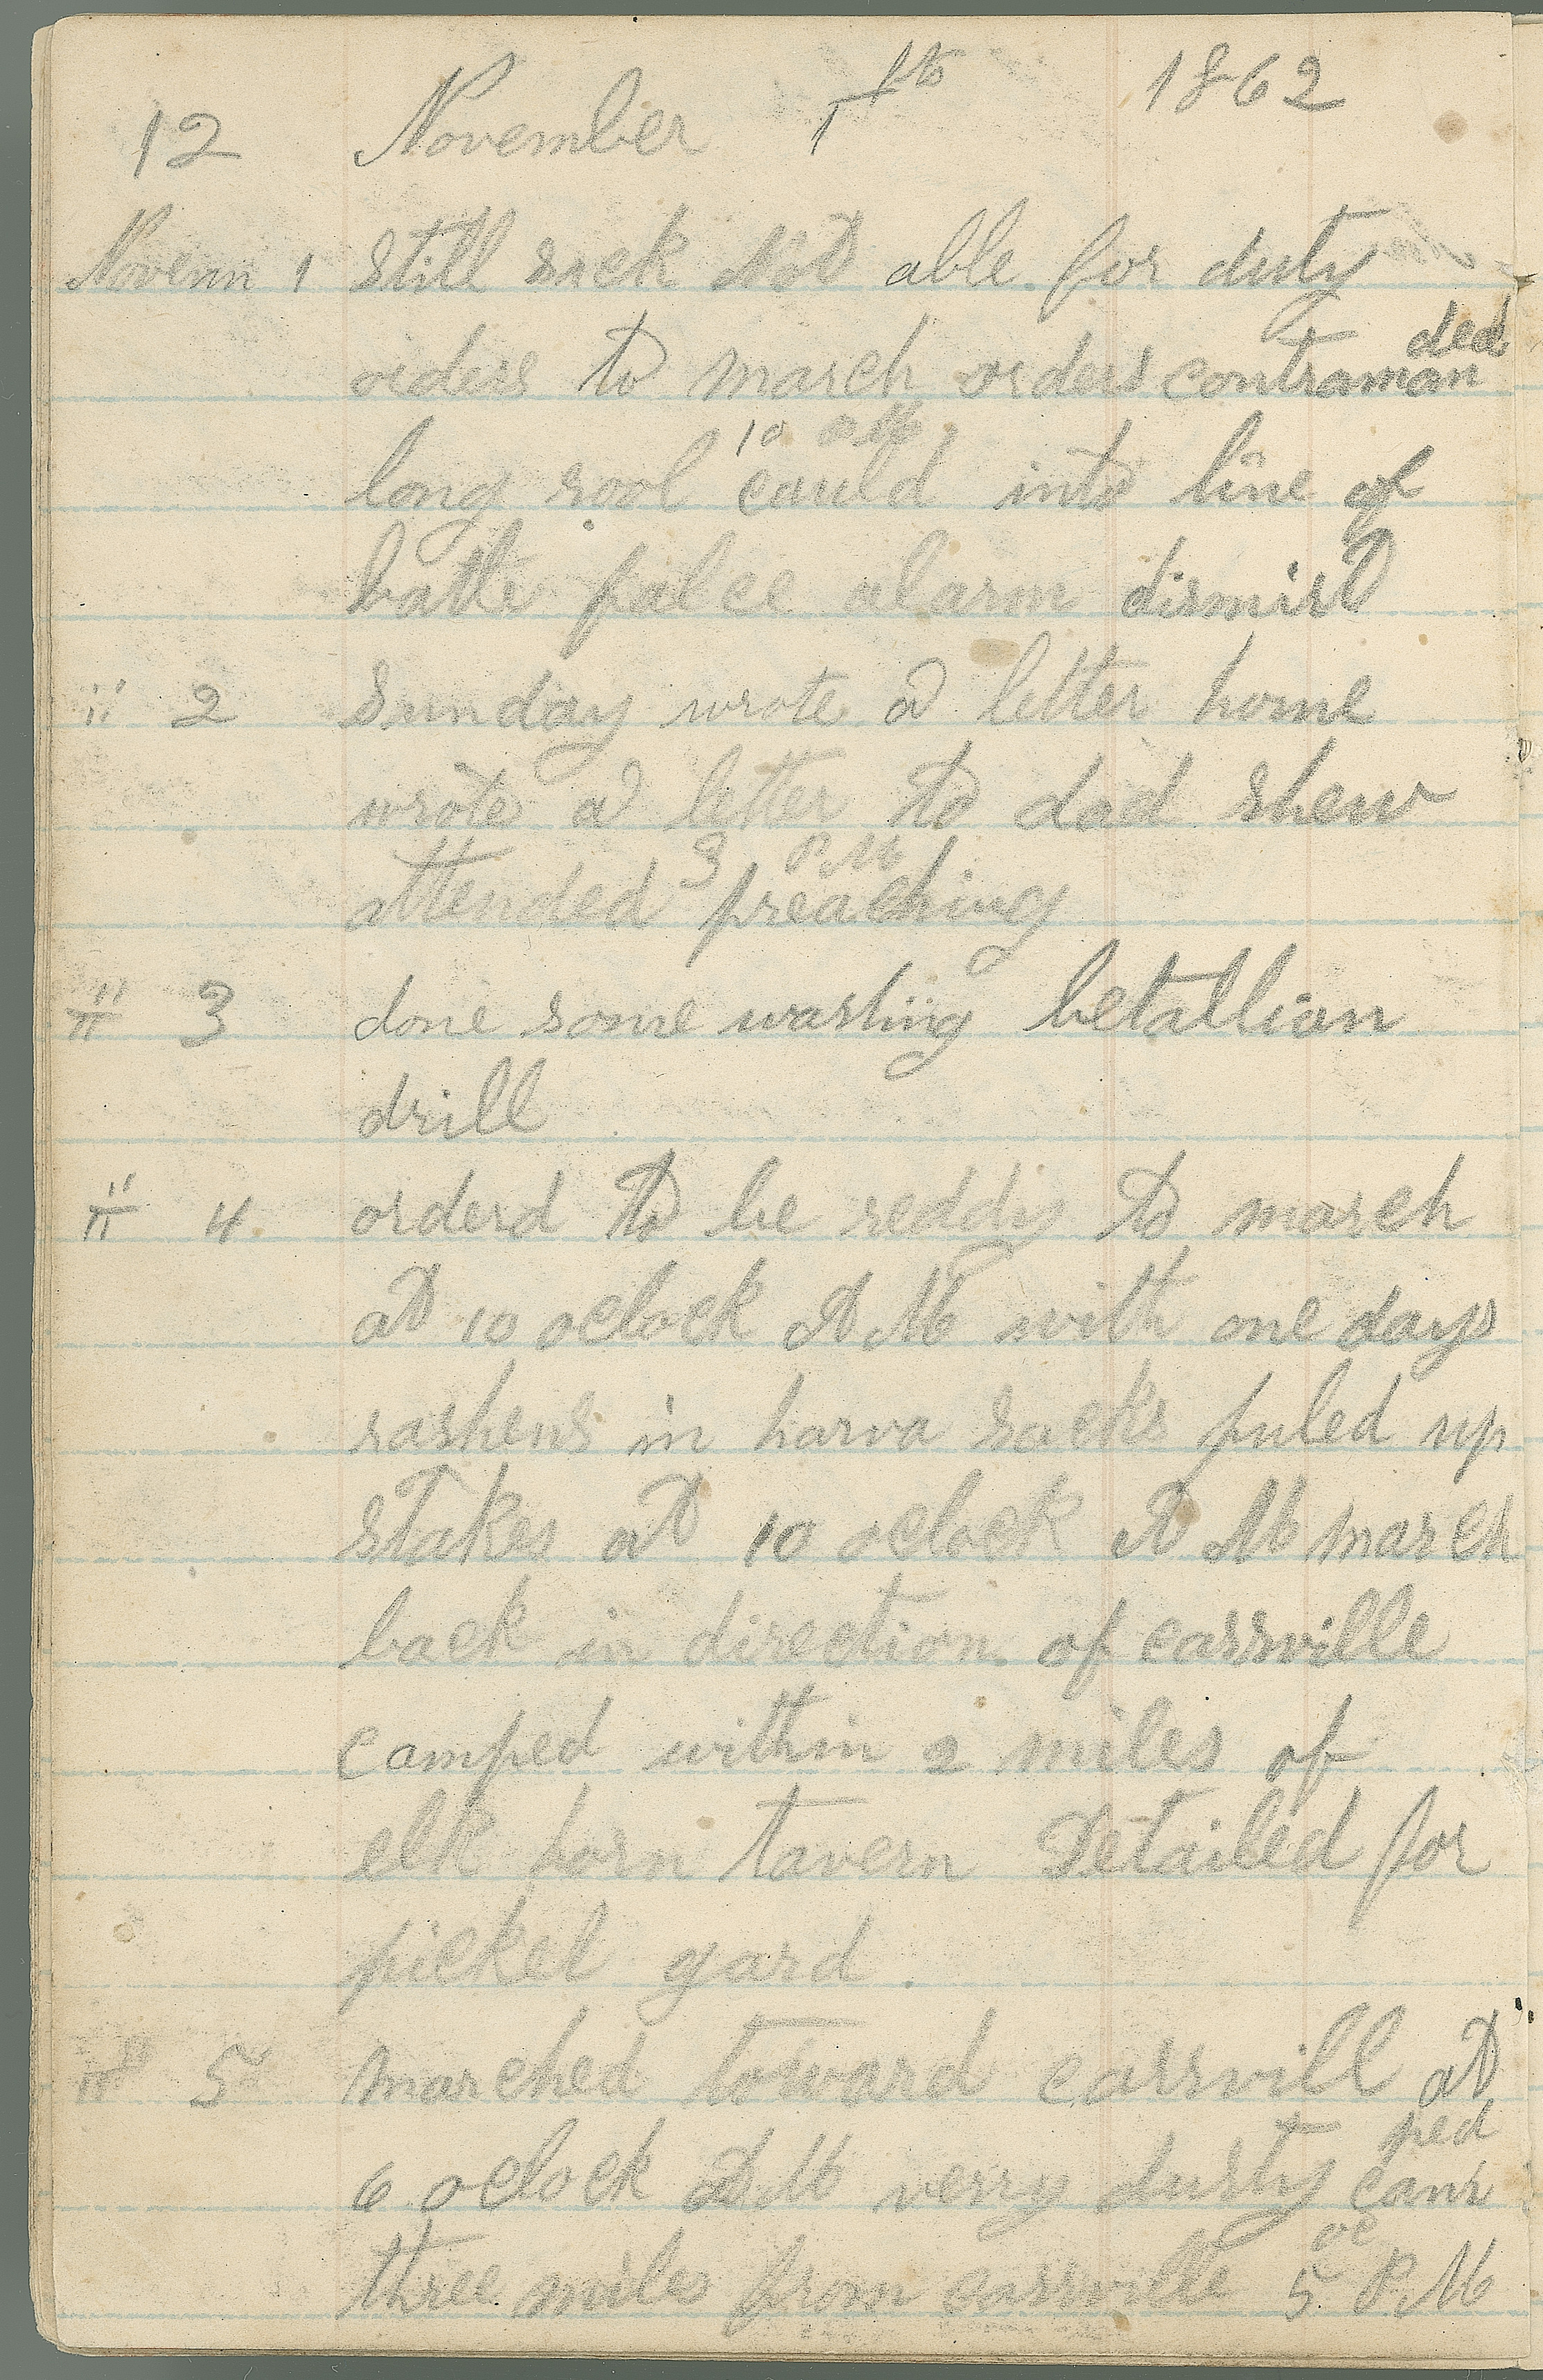 12 November 1 sto 1862
Novem 1 Still sick Not able for duty
orders to march orders contramanded
long rool 10 a M cauld into line of
battle falce alarm dismist
" 2 Sunday wrote a letter home
wrote a letter to dad shew
attended 3 P M preaching
" 3 done some washing betallian
drill
" 4 orderd to be reddy to march
at 10 oclock A M with one days
rashens in harva sacks puled up
stakes at 10 oclock A M march
back in direction of cassville
camped within 2 miles of
elk horn tavern Detailed for
picket gard
" 5 marched toward cassvill at
6 oclock A M verry dusty camped
three miles from cassville 5 oc P M